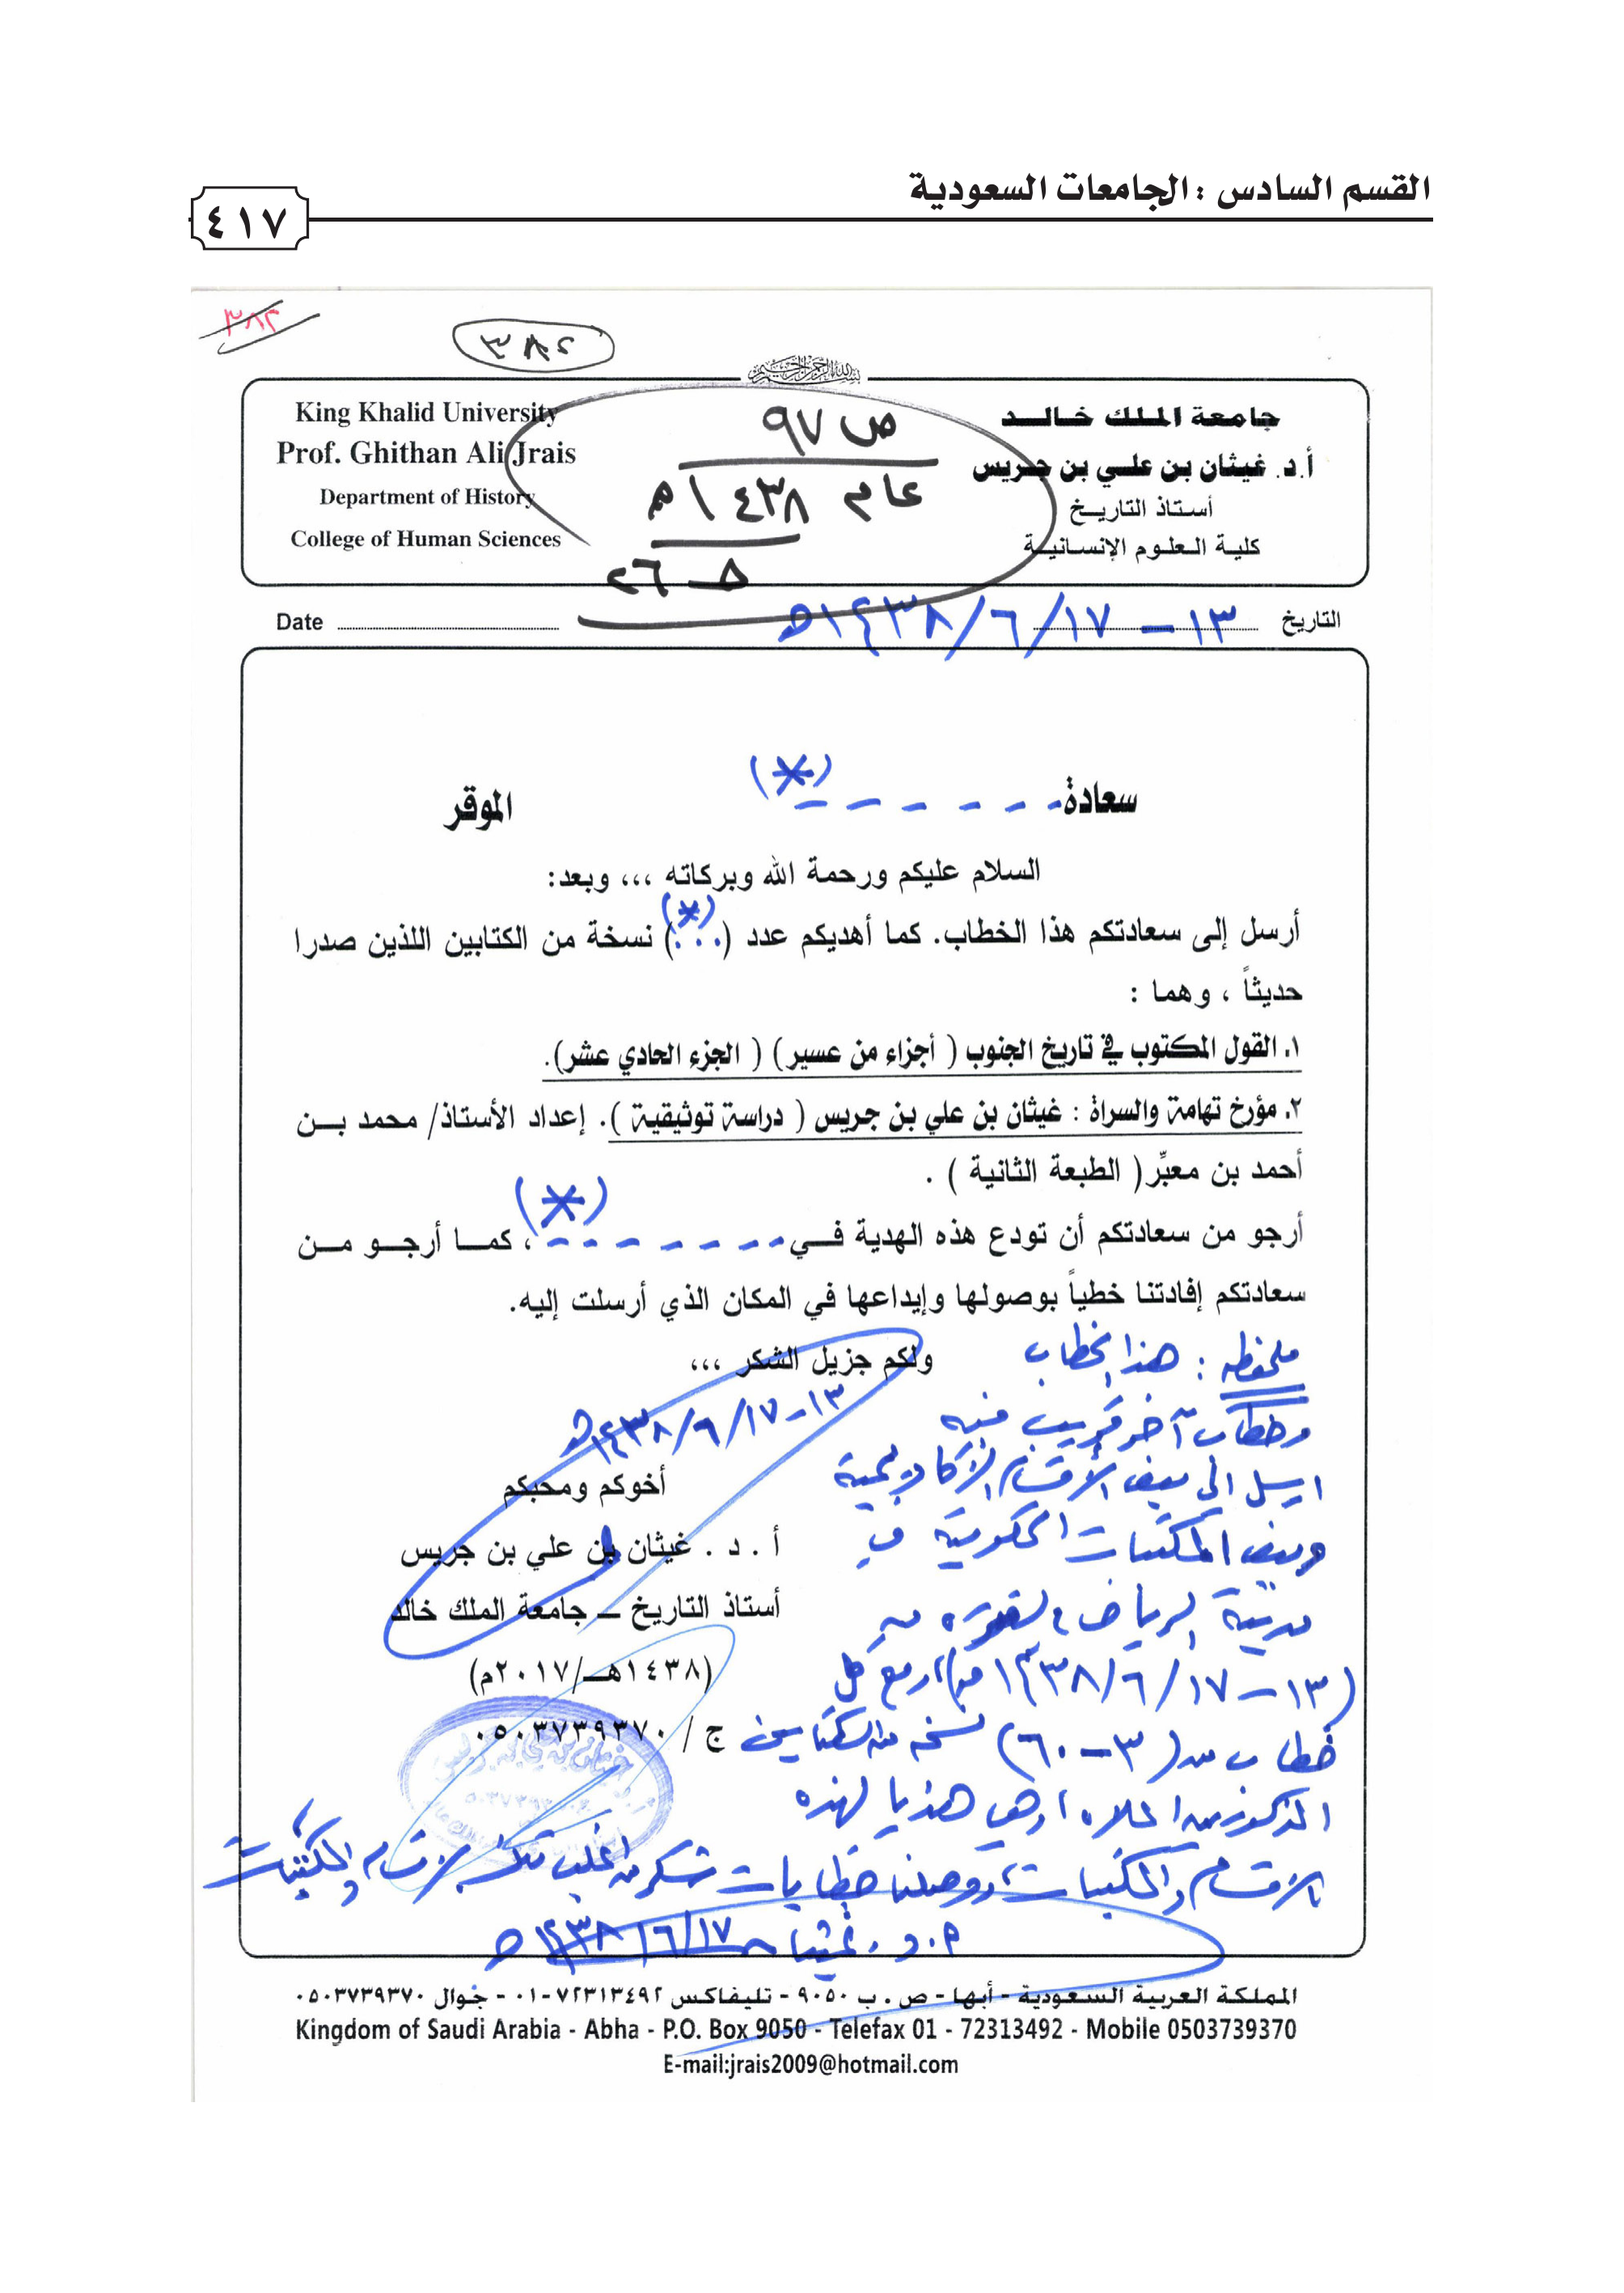 القسم السادس : الجامعات السعودية
٤١٧
٣٨٢
٣٨٢
بسم الله الرحمن الرحيم
جامعة الملك خالد
أ.د. غيثان بن علي بن جريس
أستاذ التاريخ
كلية العلوم الإنسانية
King Khalid University
Prof. Ghithan Ali Jrais
Department of History
College of Human Sciences
ص ٩٧
عام ١٤٣٨هـ
هـ ٢٦
التاريخ ١٣ – ١٤٣٨/٦/١٧هـ
Date
سعادة- - - - - - (*) الموقر
السلام عليكم ورحمة الله وبركاته ،،، وبعد:
أرسل إلى سعادتكم هذا الخطاب. كما أهديكم عدد (...)(*) نسخة من الكتابين اللذين صدرا
حديثاً ، وهما :
١. القول المكتوب في تاريخ الجنوب ( أجزاء من عسير) ( الجزء الحادي عشر).
٢. مؤرخ تهامة والسراة : غيثان بن علي بن جريس ( دراسة توثيقية ). إعداد الأستاذ/ محمد بن
أحمد بن معبِّر( الطبعة الثانية ) .
أرجو من سعادتكم أن تودع هذه الهدية في- - - - - - (*)، كما أرجو من
سعادتكم إفادتنا خطياً بوصولها وإيداعها في المكان الذي أرسلت إليه.
ولكم جزيل الشكر ،،،
١٣-١٤٣٨/٦/١٧هـ
أخوكم ومحبكم
أ . د . غيثان بن علي بن جريس
أستاذ التاريخ – جامعة الملك خالد
(١٤٣٨هـ/٢٠١٧م)
ج / ٠٥٠٣٧٣٩٣٧٠
ملحظه : هذا الخطاب
وخطاب آخر قريب منه
ارسل الى بعض الأقسام الأكاديمية
وبعض المكتبات الحكومية في
مدينة الرياض ، الفتره من
(١٣-١٤٣٨/٦/١٧هـ) ومع كل
خطاب من (٣-٦٠) نسخه من الكتابين
المذكورين اعلاه ، وهي هدايا لهذه
الاقسام والمكتبات، ووصلنا خطابات شكر من اغلب تلك الاقسام والمكتبات
أ.د. غيثان ١٤٣٨/٦/١٧هـ
المملكة العربية السعودية - أبها - ص . ب ٩٠٥٠ - تليفاكس ٧٢٣١٣٤٩٢-٠١ - جوال ٠٥٠٣٧٣٩٣٧٠
Kingdom of Saudi Arabia - Abha - P.O. Box 9050 - Telefax 01 - 72313492 - Mobile 0503739370
E-mail:jrais2009@hotmail.com